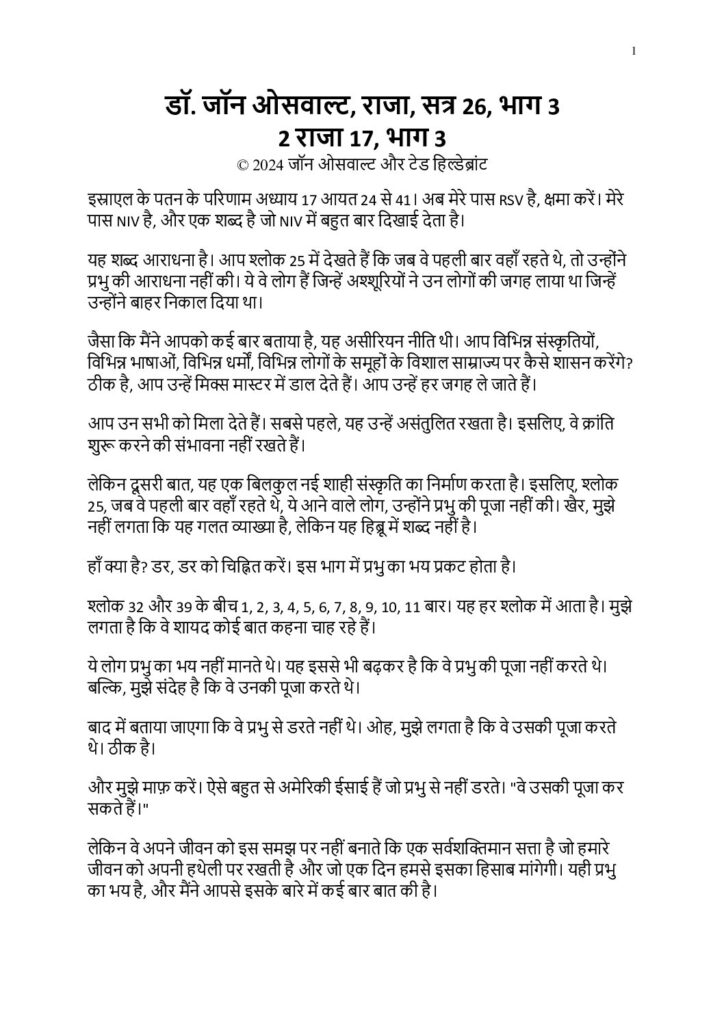 1
डॉ. जॉन ओसवाल्ट, राजा, सत्र 26, भाग 3
2 राजा 17, भाग 3
© 2024 जॉन ओसवाल्ट और टेड हिल्डेब्रांट
इस्राएल के पतन के परिणाम अध्याय 17 आयत 24 से 41। अब मेरे पास RSV है, क्षमा करें। मेरे
पास NIV है, और एक शब्द है जो NIV में बहुत बार दिखाई देता है।
यह शब्द आराधना है। आप श्लोक 25 में देखते हैं कि जब वे पहली बार वहाँ रहते थे, तो उन्होंने
प्रभु की आराधना नहीं की। ये वे लोग हैं जिन्हें अश्शूरियों ने उन लोगों की जगह लाया था जिन्हें
उन्होंने बाहर निकाल दिया था।
जैसा कि मैंने आपको कई बार बताया है, यह असीरियन नीति थी। आप विभिन्न संस्कृतियों,
विभिन्न भाषाओं, विभिन्न धर्मों, विभिन्न लोगों के समूहों के विशाल साम्राज्य पर कैसे शासन करेंगे?
ठीक है, आप उन्हें मिक्स मास्टर में डाल देते हैं। आप उन्हें हर जगह ले जाते हैं।
आप उन सभी को मिला देते हैं। सबसे पहले, यह उन्हें असंतुलित रखता है। इसलिए, वे क्रांति
शुरू करने की संभावना नहीं रखते हैं।
लेकिन दूसरी बात, यह एक बिलकुल नई शाही संस्कृति का निर्माण करता है। इसलिए, श्लोक
25, जब वे पहली बार वहाँ रहते थे, ये आने वाले लोग, उन्होंने प्रभु की पूजा नहीं की। खैर, मुझे
नहीं लगता कि यह गलत व्याख्या है, लेकिन यह हिब्रू में शब्द नहीं है।
हाँ क्या है? डर, डर को चिह्नित करें। इस भाग में प्रभु का भय प्रकट होता है।
श्लोक 32 और 39 के बीच 1, 2, 3, 4, 5, 6, 7, 8, 9, 10, 11 बार। यह हर श्लोक में आता है। मुझे
लगता है कि वे शायद कोई बात कहना चाह रहे हैं।
ये लोग प्रभु का भय नहीं मानते थे। यह इससे भी बढ़कर है कि वे प्रभु की पूजा नहीं करते थे।
बल्कि, मुझे संदेह है कि वे उनकी पूजा करते थे।
बाद में बताया जाएगा कि वे प्रभु से डरते नहीं थे। ओह, मुझे लगता है कि वे उसकी पूजा करते
थे। ठीक है।
और मुझे माफ़ करें। ऐसे बहुत से अमेरिकी ईसाई हैं जो प्रभु से नहीं डरते। "वे उसकी पूजा कर
सकते हैं।"
लेकिन वे अपने जीवन को इस समझ पर नहीं बनाते कि एक सर्वशक्तिमान सत्ता है जो हमारे
जीवन को अपनी हथेली पर रखती है और जो एक दिन हमसे इसका हिसाब मांगेगी। यही प्रभु
का भय है, और मैंने आपसे इसके बारे में कई बार बात की है।